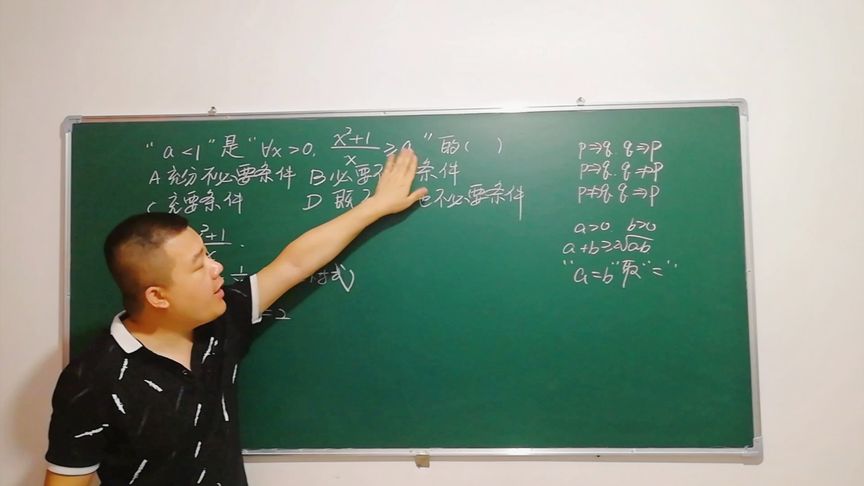 "a<1"是"∀x>0, (x²+1)/x ≥ a"的( )
A 充分不必要条件 B 必要不 条件
C 充要条件 D 既不 也不必要条件
= 2
p⇒q, q⇒p
p⇒q. q⇏p
p⇏q. q⇒p
a>0 b>0
a+b≥2√ab
"a=b"取"="